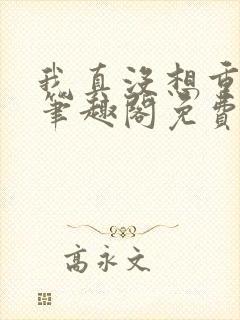 我真没想重
笔趣阁免费
高永文